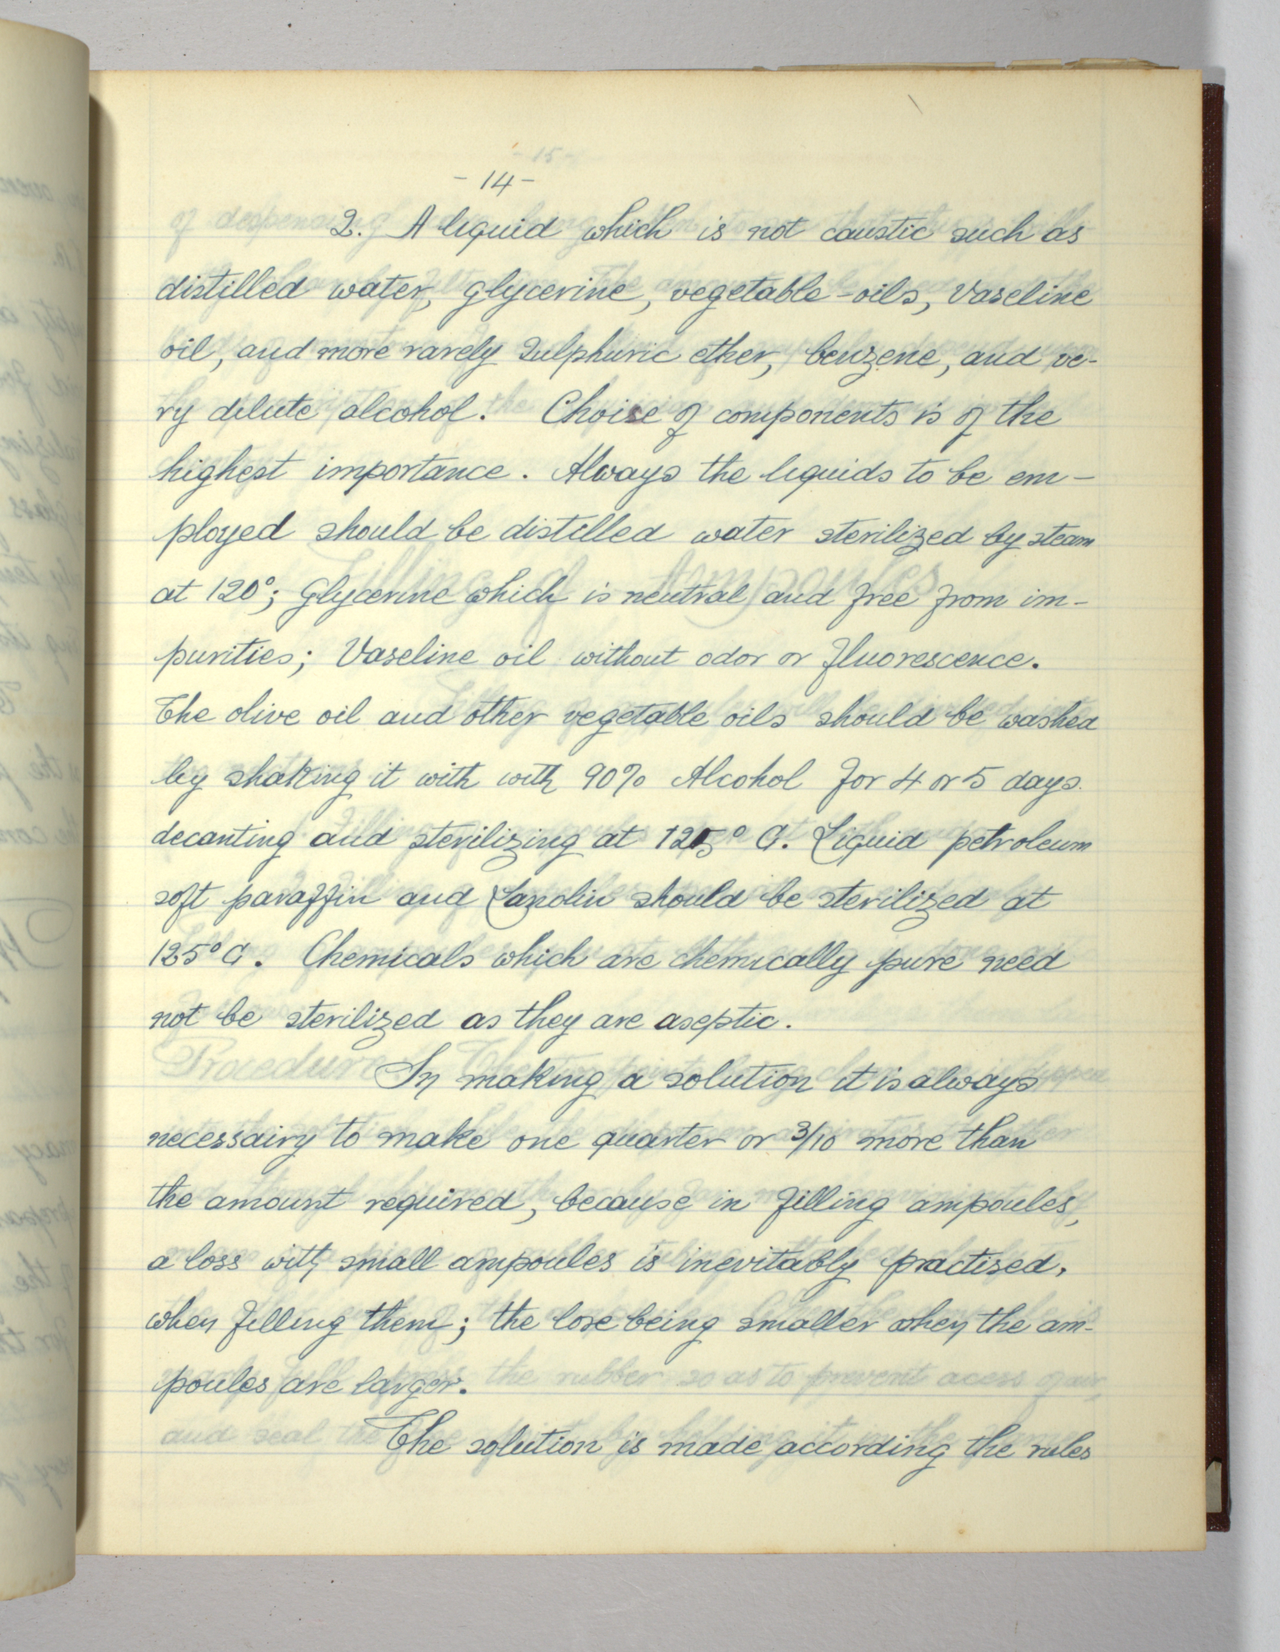 -14-
2. A liquid which is not caustic such as
distilled water, glycerine, vegetable-oils, Vaseline
oil, and more rarely Sulphuric ether, benzene, and ve-
ry dilute alcohol. Choise of components is of the
highest importance. Always the liquids to be em-
ployed should be distilled water sterilized by steam
at 120°; Glycerine which is neutral and free from im-
purities; Vaseline oil without odor or fluorescence.
The olive oil and other vegetable oils should be washed
by shaking it with with 90% Alcohol for 4 or 5 days.
decanting and sterilizing at 125° C. Liquid petroleum
soft paraffin and Lanolin should be sterilized at
125° C. Chemicals which are chemically pure need
not be sterilized as they are aseptic.
In making a solution it is always
necessairy to make one quarter or 3/10 more than
the amount required, because in filling ampoules,
a loss with small ampoules is inevitably practised,
when filling them; the lose being smaller when the am-
poules are larger.
The solution is made according the rules